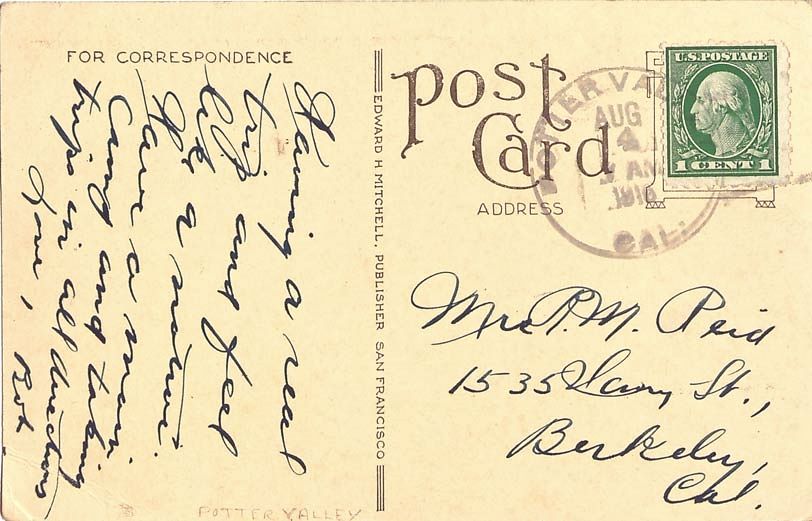 FOR CORRESPONDENCE
Having a real
trip and feel
like a native.
Have a main
camp and taking
trips in all directions
Love, Rob
EDWARD H MITCHELL, PUBLISHER SAN FRANCISCO
Post
Card
ADDRESS
POTTER VAL
AUG
4
AM
CAL.
U.S. POSTAGE
1 CENT 1
Mrs. P. M. Reid
1535 St.,
Berkeley,
Cal.
POTTER VALLEY